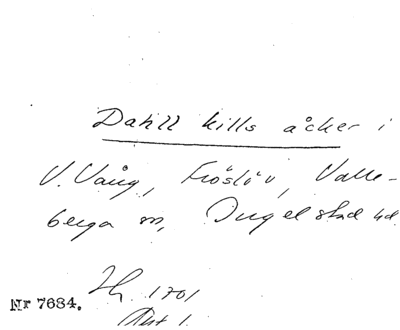 Datill kills åcker i
V. Vång, Fröslöv, Valle-
berga sn, Ingelstad hd.
Nr 7684. 1701